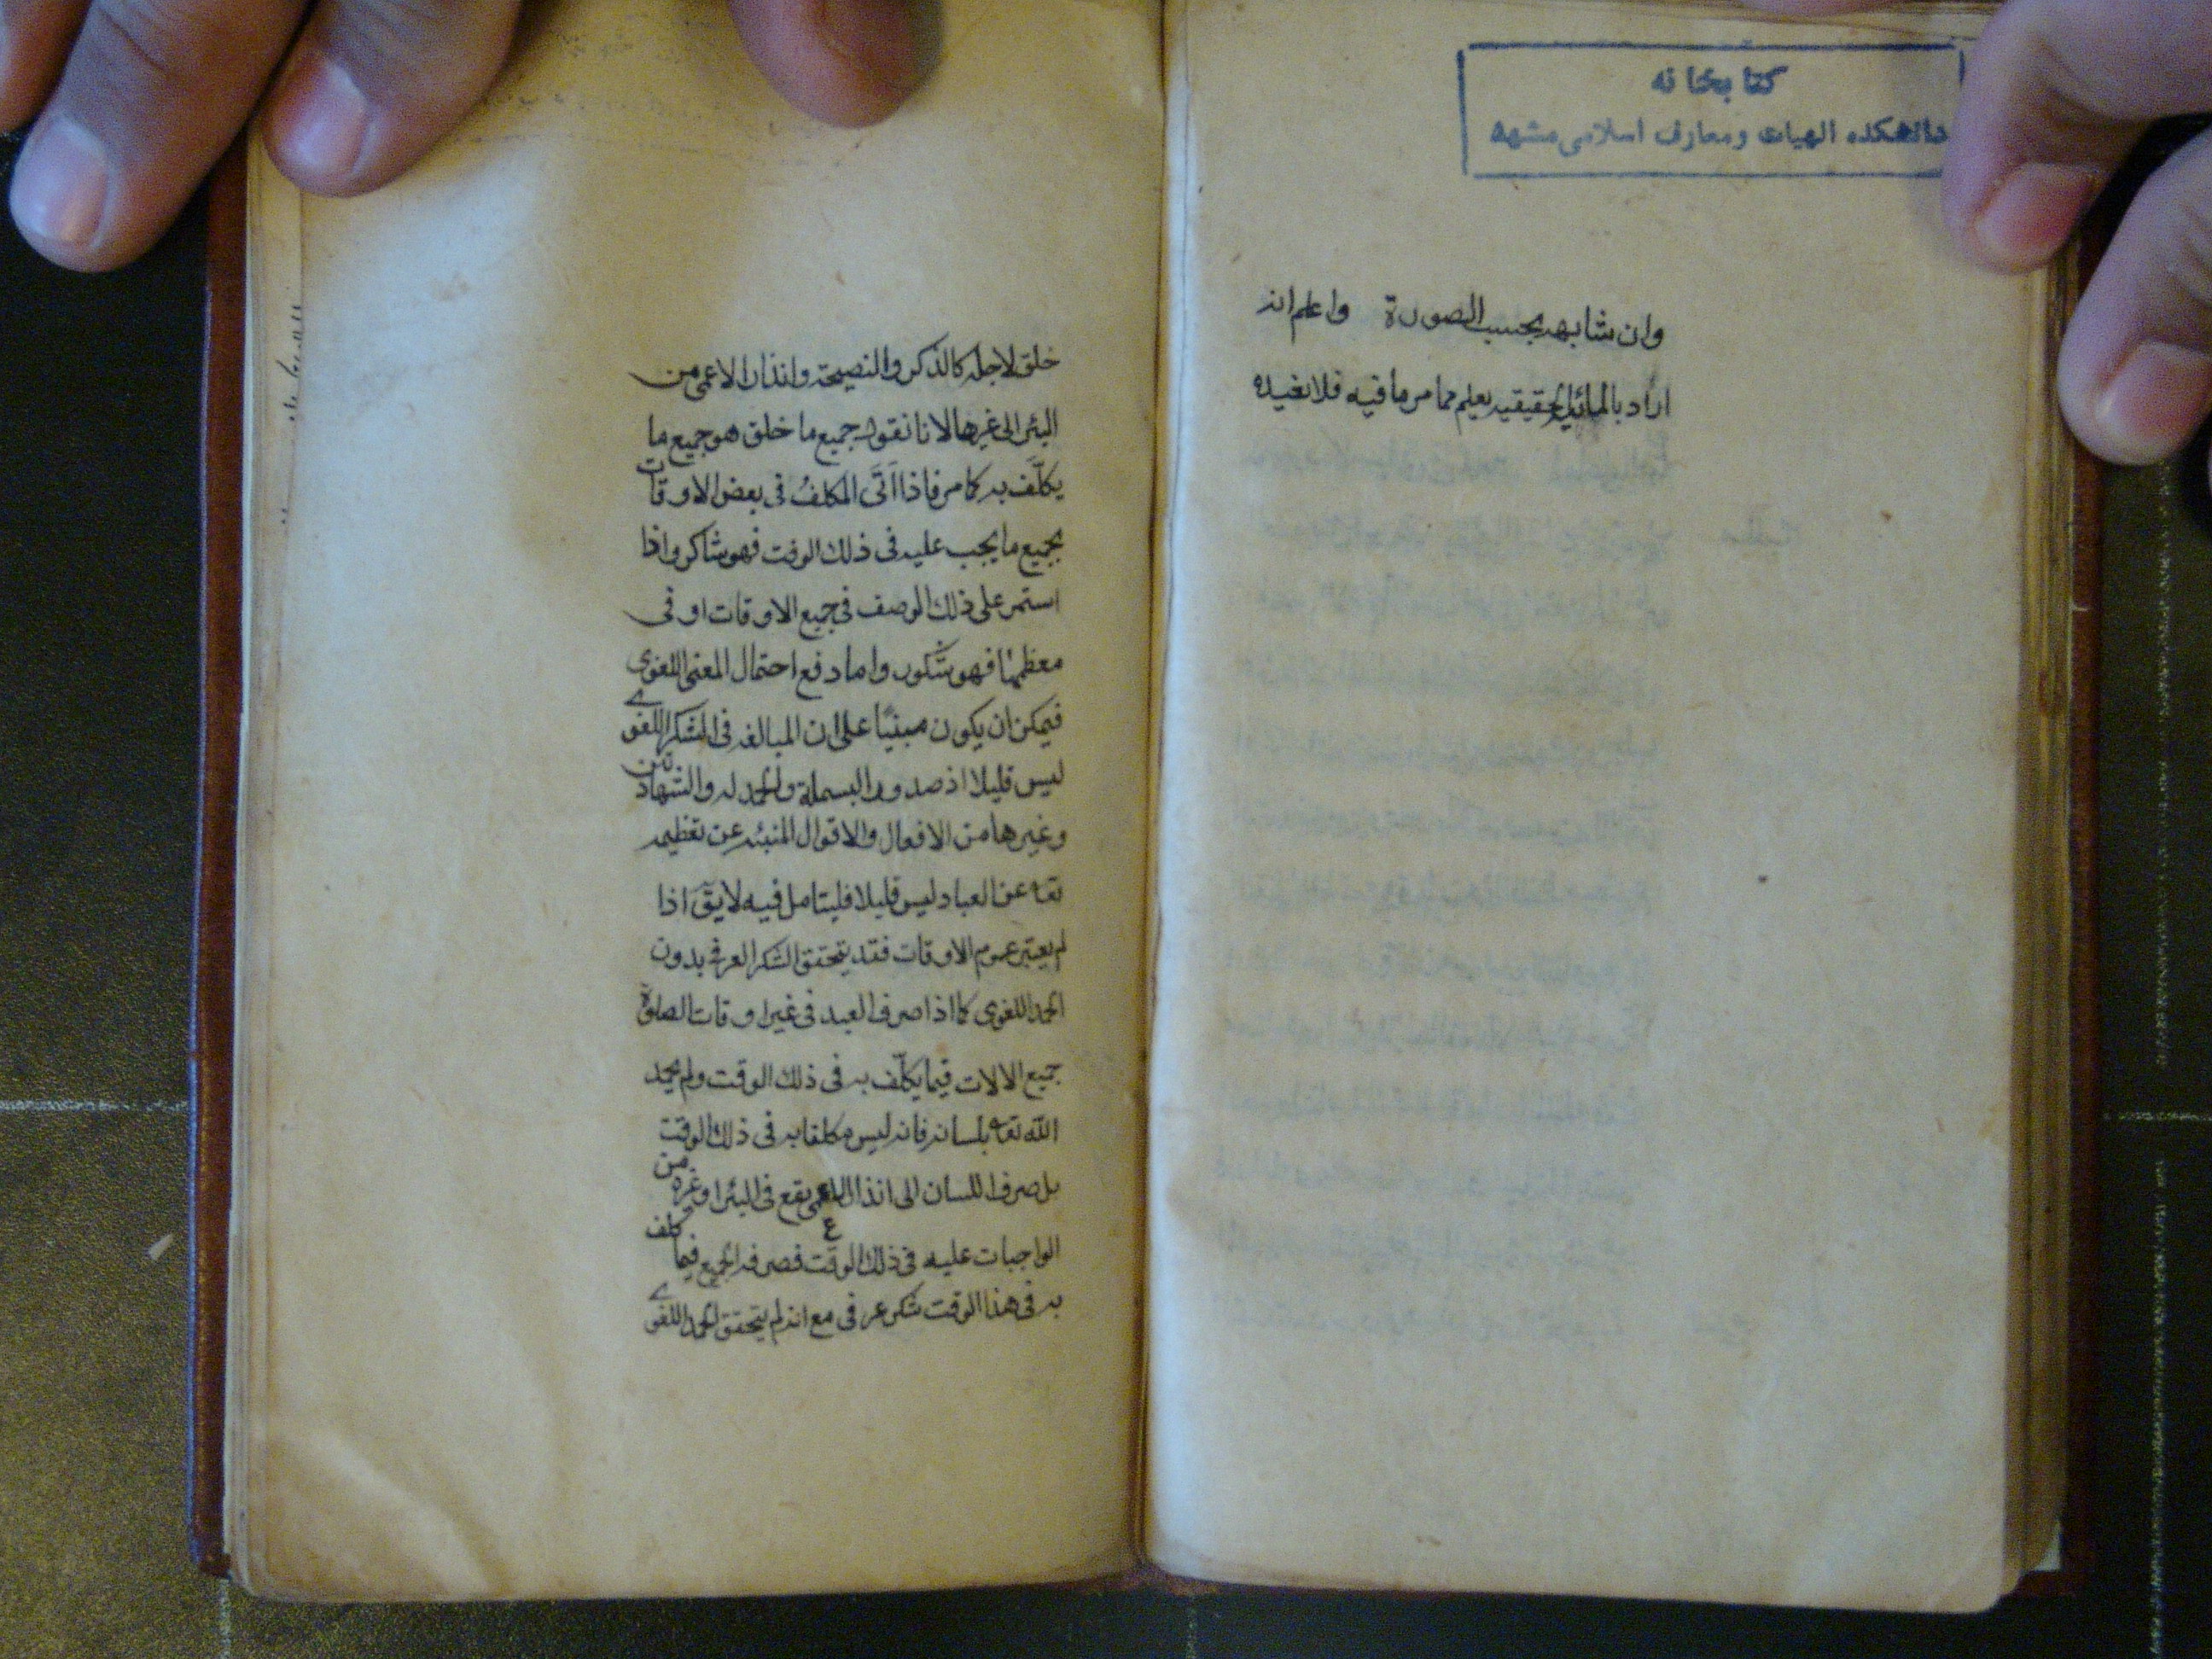 كتابخانه
دانشكده الهيات ومعارف اسلامى مشهد
وان شابهه بحسب الصورة واعلم انه
اراد بالمائية الحقيقيه يعلم مما مر ما فيه فلا نعيده
خلق لاجله كالذكر والنصيحة وانذار الاعمى من
البئر الى غيرها لانا نقول جميع ما خلق هو جميع ما
يكلَّف به كما مر فاذا اَتَى المكلفُ فى بعض الاوقات
بجميع ما يجب عليه فى ذلك الوقت فهو شاكر واذا
استمر على ذلك الوصف فى جميع الاوقات او فى
معظمها فهو شكور واما دفع احتمال المعنى اللغوى
فيمكن ان يكون مبنيًا على ان المبالغه فى الشكر اللغوى
ليس قليلا اذ صدور البسملة والحمد له والشهادتين
وغيرها من الافعال والاقوال المنبئه عن تعظيمه
تعه عن العباد ليس قليلا فليتامل فيه لا يق اذا
لم يعتبر عموم الاوقات فقد يتحقق الشكر العرفى بدون
الحمد اللغوى كما اذا صرف العبد فى غير اوقات الصلوة
جميع الالات فيما يكلّف به فى ذلك الوقت ولم يحمد
الله تعه بلسانه فانه ليس مكلفا به فى ذلك الوقت
بل صرف اللسان الى انذار الاعمى يقع فى البئر او غيره من
الواجبات عليه فى ذلك الوقت فصرفه الجميع فيما كلف
به فى هذا الوقت شكر عرفى مع انه لم يتحقق الحمد اللغوى